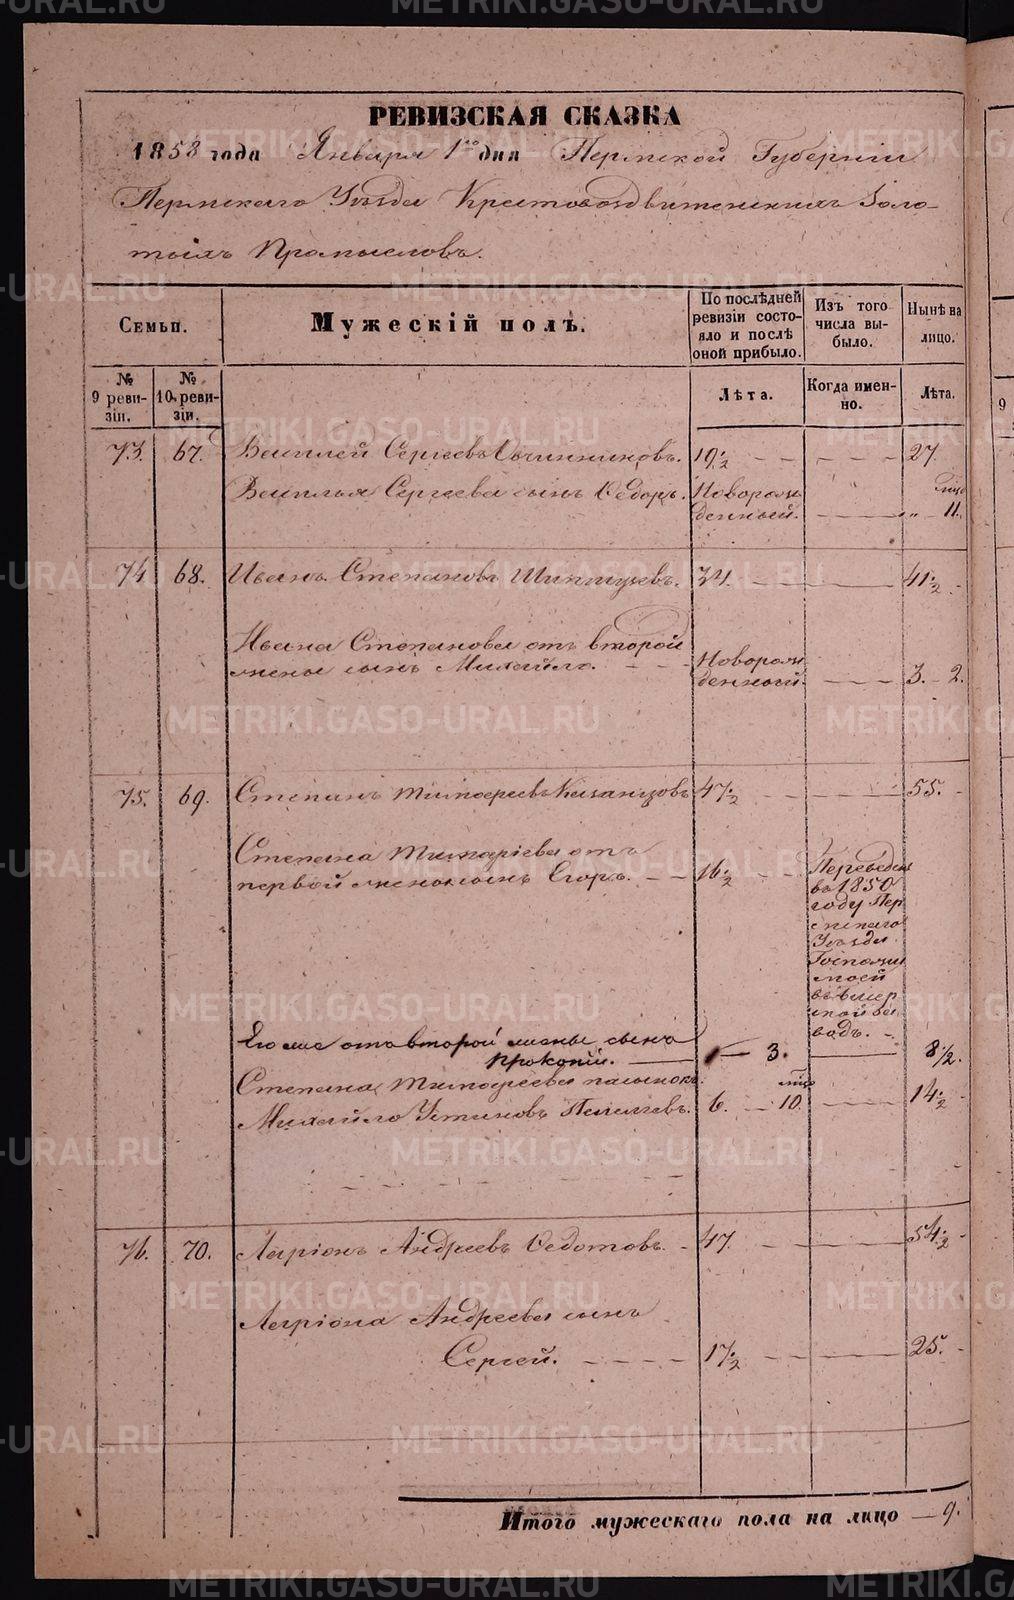 РЕВИЗСКАЯ СКАЗКА
1858 года Января 1го дня Пермской Губерніи
Пермскаго Уѣзда Крестовоздвиженскихъ Золо-
тыхъ Промысловъ.
Семьи.
Мужескій полъ.
По послѣдней ревизіи состояло и послѣ оной прибыло.
Изъ того числа выбыло.
Нынѣ на лицо.
№ 9 ревизіи.
№ 10 ревизіи.
Лѣта.
Когда именно.
Лѣта.
73. 67. Василей Сергеевъ Овчинниковъ. 19½ 27.
Василья Сергеева сынъ Ѳедоръ. Новорож
денный. „ 11.
74 68. Иванъ Степановъ 34. 41½
Ивана Степанова отъ второй
жены сынъ Михайло. Новорож
денный. 3. 2.
75. 69. Степанъ Тимофеевъ 47½ 55.
Степана Тимофіева отъ
первой жены сынъ Егоръ. 16½
Переведенъ
въ 1850
году Пер
мскаго
Уѣзда
водъ.
Его же отъ второй жены сынъ
Прокопій. 1 — 3. 8½.
Степана Тимофеева пасынокъ
Михайло Устиновъ 6. — 10. 14½
76. 70. Ларіонъ Андреевъ Ѳедотовъ. 47. 54½
Ларіона Андреева сынъ
Сергей. 17½ 25.
Итого мужескаго пола на лицо — 9.
METRIKI.GASO-URAL.RU